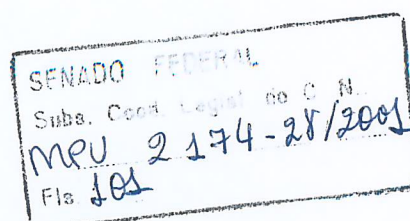 SENADO FEDERAL
Subs. Coord. Legisl. do C. N.
MPV 2 174-28/2001
Fls 101